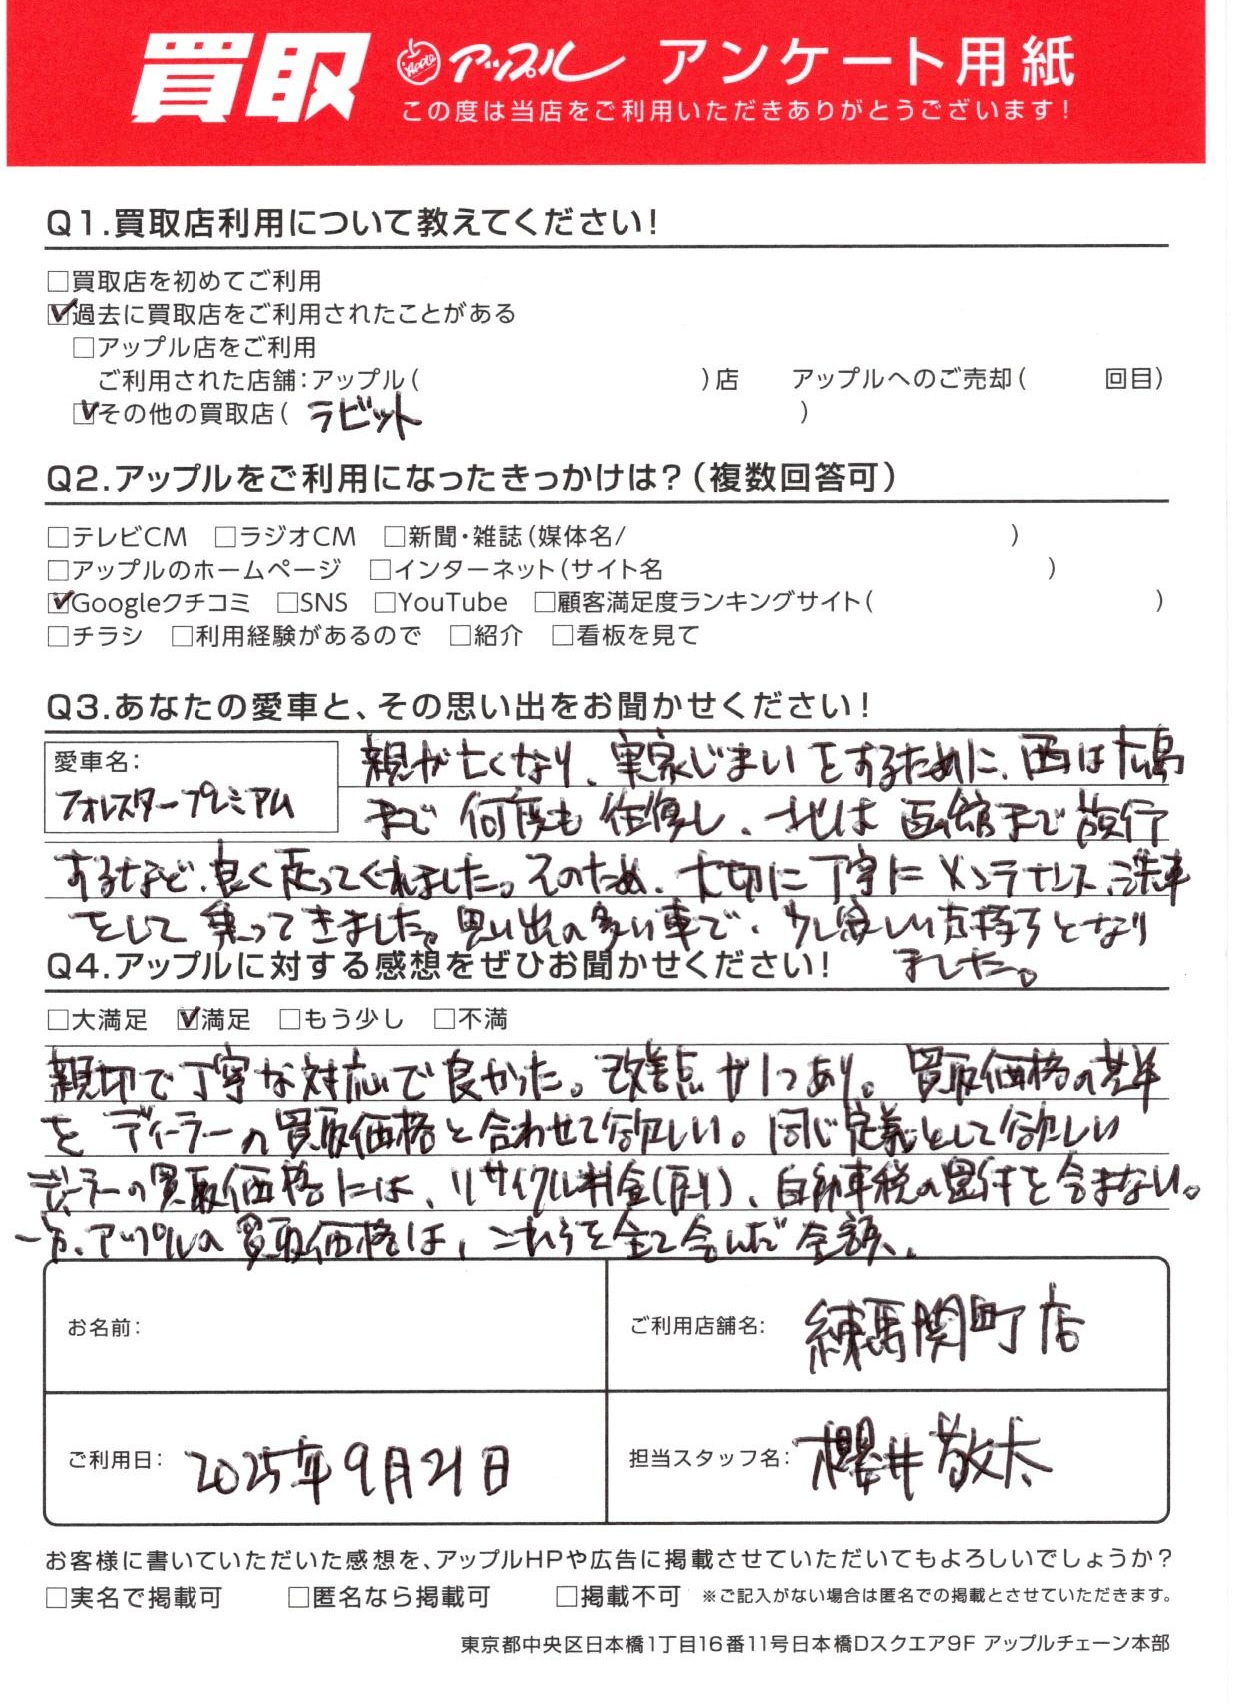 買取 Apple アップル アンケート用紙
この度は当店をご利用いただきありがとうございます!
Q1.買取店利用について教えてください!
□買取店を初めてご利用
☑過去に買取店をご利用されたことがある
□アップル店をご利用
ご利用された店舗:アップル( )店 アップルへのご売却( 回目)
☑その他の買取店( ラビット )
Q2.アップルをご利用になったきっかけは?(複数回答可)
□テレビCM □ラジオCM □新聞・雑誌(媒体名/ )
□アップルのホームページ □インターネット(サイト名 )
☑Googleクチコミ □SNS □YouTube □顧客満足度ランキングサイト( )
□チラシ □利用経験があるので □紹介 □看板を見て
Q3.あなたの愛車と、その思い出をお聞かせください!
愛車名:
フォレスタープレミアム
親が亡くなり、実家じまいをするために、西は広島
まで何度も往復し、北は函館まで旅行
するなど、良く走ってくれました。そのため、大切に丁寧にメンテナンス、洗車
をして乗ってきました。思い出の多い車で、少し寂しい気持ちとなり
ました。
Q4.アップルに対する感想をぜひお聞かせください!
□大満足 ☑満足 □もう少し □不満
親切で丁寧な対応で良かった。改善点が1つあり。買取価格の基準
をディーラーの買取価格と合わせて欲しい。同じ定義として欲しい
ディーラーの買取価格には、リサイクル料金(戻り)、自動車税の還付を含まない。
一方、アップルの買取価格は、これらを全て含んだ金額、
お名前:
ご利用店舗名: 練馬関町店
ご利用日: 2025年9月21日
担当スタッフ名: 櫻井敬太
お客様に書いていただいた感想を、アップルHPや広告に掲載させていただいてもよろしいでしょうか?
□実名で掲載可 □匿名なら掲載可 □掲載不可 ※ご記入がない場合は匿名での掲載とさせていただきます。
東京都中央区日本橋1丁目16番11号日本橋Dスクエア9F アップルチェーン本部